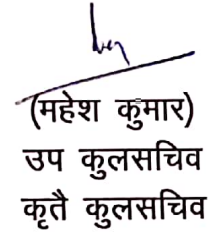 (महेश कुमार)
उप कुलसचिव
कृतै कुलसचिव